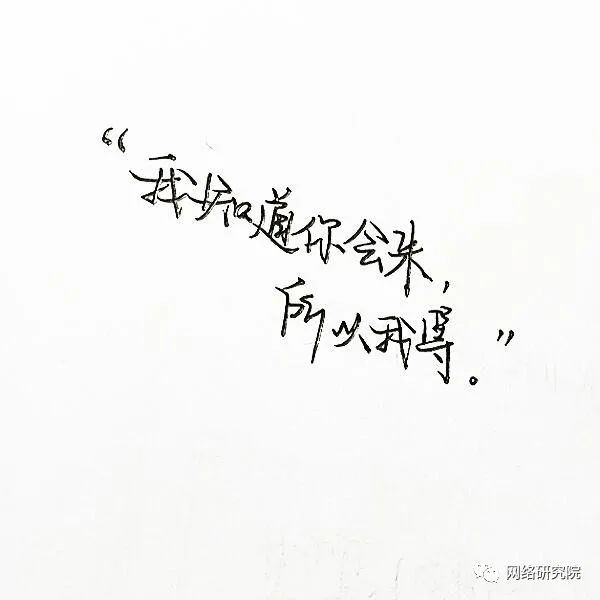 “我知道你会来，
所以我等。”
网络研究院